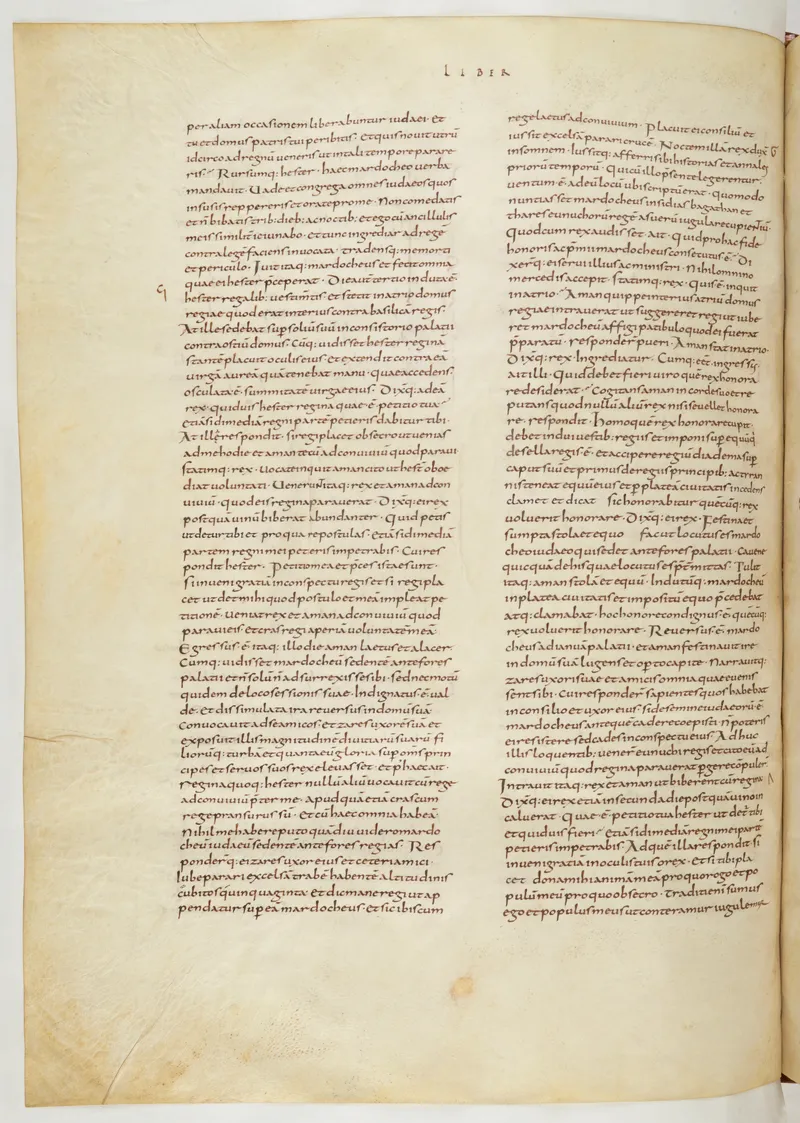 LIBER
per aliam occasionem liberabuntur iudaei · Et
tu et domus patris tui peribitis · Et quis nouit utrū
idcirco ad regnū ueneris ut in tali tempore parare
ris · Rursumq: hester · haec mardocheo uerba
mandauit · Uade et congrega omnes iudaeos quos
in susis reppereris et orate pro me · Non comedatis
et ñ bibatis trib: dieb; ac noctib; et ego cū ancillulis
meis similit ieiunabo · et tunc ingrediar ad regē
contra legē faciens inuocata · tradensq: me morti
et periculo · Iuit itaq: mardocheus et fecit omnia
quae ei hester pceperat · Die aut tertio induta ē
hester regalib: uestimtis et stetit in atrio domus
regiae quod erat interius contra basilicā regis ·
At ille sedebat sup soliū suū in consistorio palatii
contra ostiū domus · Cūq: uidisset hester reginā
stantē placuit oculis eius et extendit contra eā
uirgā aureā quā tenebat manu · quae accedens
osculata ē summitatē uirgae eius · Dixq: ad eā
rex · quid uis hester regina quae ē petitio tua
etiā si dimediā regni partē petieris dabitur tibi ·
At illa respondit · si regi placet obsecro ut uenias
ad me hodie et aman tecū ad conuiuiū quod paraui
statimq: rex · uocate inquit aman cito ut hest oboe
diat uoluntati · Uener itaq: rex et aman ad con
uiuiū · quod eis regina parauerat · Dixq: ei rex
postquā uinū biberat abundanter · Quid petis
ut detur tibi et pro qua re postulas · Etiā si dimediā
partem regni mei petieris impetrabis · Cui res
pondit hester · Petitio mea et pces istae sunt ·
Si inueni gratiā in conspectu regis et si regi pla
cet ut det mihi quod postulo et meā impleat pe
titionē · ueniat rex et aman ad conuiuiū quod
paraui eis et cras regi aperiā uoluntatē meā
Egressus ē itaq: illo die aman laetus et alacer ·
Cumq: uidisset mardocheū sedentē ante fores
palatii et ñ solū ñ adsurrexisse sibi · sed nec motū
quidem de loco sessionis suae · Indignatus ē ual
de · Et dissimulata ira reuersus in domū suā
Conuocauit ad se amicos et zares uxorē suā et
exposuit illis magnitudinē diuitiarū suarū fi
liorūq: turbā et quanta eū gloria sup oms prin
cipes et seruos suos rex eleuasset · et p haec ait ·
Regina quoq: hester nullū aliū uocauit cū rege
ad conuiuiū pter me · Apud quā etiā cras cum
rege pransurus sū · Et cū haec omnia habeā
Nihil me habere puto quādiu uidero mardo
cheū iudaeū sedentē ante fores regias · Res
ponderq: ei zares uxor eius et ceteri amici ·
Iube parari excelsā trabē habentē altitudinis
cubitos quinquaginta · Et dic mane regi ut ap
pendatur sup eā mardocheus · Et sic ibis cum
rege laetus ad conuiuium · Placuit ei consiliū et
iussit excelsā parari crucē · Noctem illā rex duxit
insomnem · Iussitq: afferri sibi historias et annales
priorū temporū · Quae cū illo psente legerentur
uentum ē ad eū locū ubi scriptū erat · quomodo
nuntiasset mardocheus insidias bagathan et
thares eunuchorū regē asuerū iugulare cupientiū
Quod cum rex audisset ait · Quid pro hac fide
honoris ac pmii mardocheus consecutus ē · Di
xerq: ei serui illius ac ministri · Nihil omnino
mercedis accepit · Statimq: rex · Quis ē inquit
in atrio · Aman quippe interius atriū domus
regiae intrauerat ut suggereret regi ut iube
ret mardocheū affigi patibulo quod ei fuerat
pparatū · responder pueri · Aman stat in atrio
Dixq: rex · Ingrediatur · Cumq: eet ingressus
ait illi · Quid debet fieri uiro quē rex honora
re desiderat · Cogitans aman in corde suo et re
putans quod nullū aliū rex nisi se uellet honora
re · respondit · homo quē rex honorare cupit
debet indui uestib: regiis et imponi sup equū q
de sella regis ē · et accipere regiū diadema sup
caput suū et primus de regiis principib: ac tyran
nis teneat equū eius et p plateā ciuitatis incedens
clamet et dicat sic honorabitur quēcūq: rex
uoluerit honorare · Dixq: ei rex · Festina et
sumpta stola et equo fac ut locutus es mardo
cheo iudaeo qui sedet ante fores palatii · Caue ne
quicquā de his quae locutus es ptmittas · Tulit
itaq: aman stolā et equū · Indutūq: mardocheū
in platea ciuitatis et impositū equo pcedebat
atq: clamabat · hoc honore condignus ē quēcūq:
rex uoluerit honorare · Reuersus ē mardo
cheus ad ianuā palatii · et aman festinauit ire
in domū suā lugens et opto capite · Narrauitq:
zares uxori suae et amicis omnia quae euenis
sent sibi · Cui responder sapientes quos habebat
in consilio et uxor eius · si de semine iudaeorū ē
mardocheus ante quē cadere coepisti · ñ poteris
ei resistere sed cades in conspectu eius · Adhuc
illis loquentib: uener eunuchi regis et cito eū ad
conuiuiū quod regina parauerat pgere cōpuler
Intrauit itaq: rex et aman ut biberent cū regina
Dixq: ei rex etiā in secunda die postquā uino in
caluerat · Quae ē petitio tua hester ut det tibi
et quid uis fieri · Etiā si dimediā regni mei partē
petieris impetrabis · Ad quē illa respondit · si
inueni gratiā in oculis tuis o rex · et si tibi pla
cet dona mihi animā meā pro qua rogo et po
pulū meū pro quo obsecro · Traditi eni sumus
ego et populus meus ut conteramur iugulemur